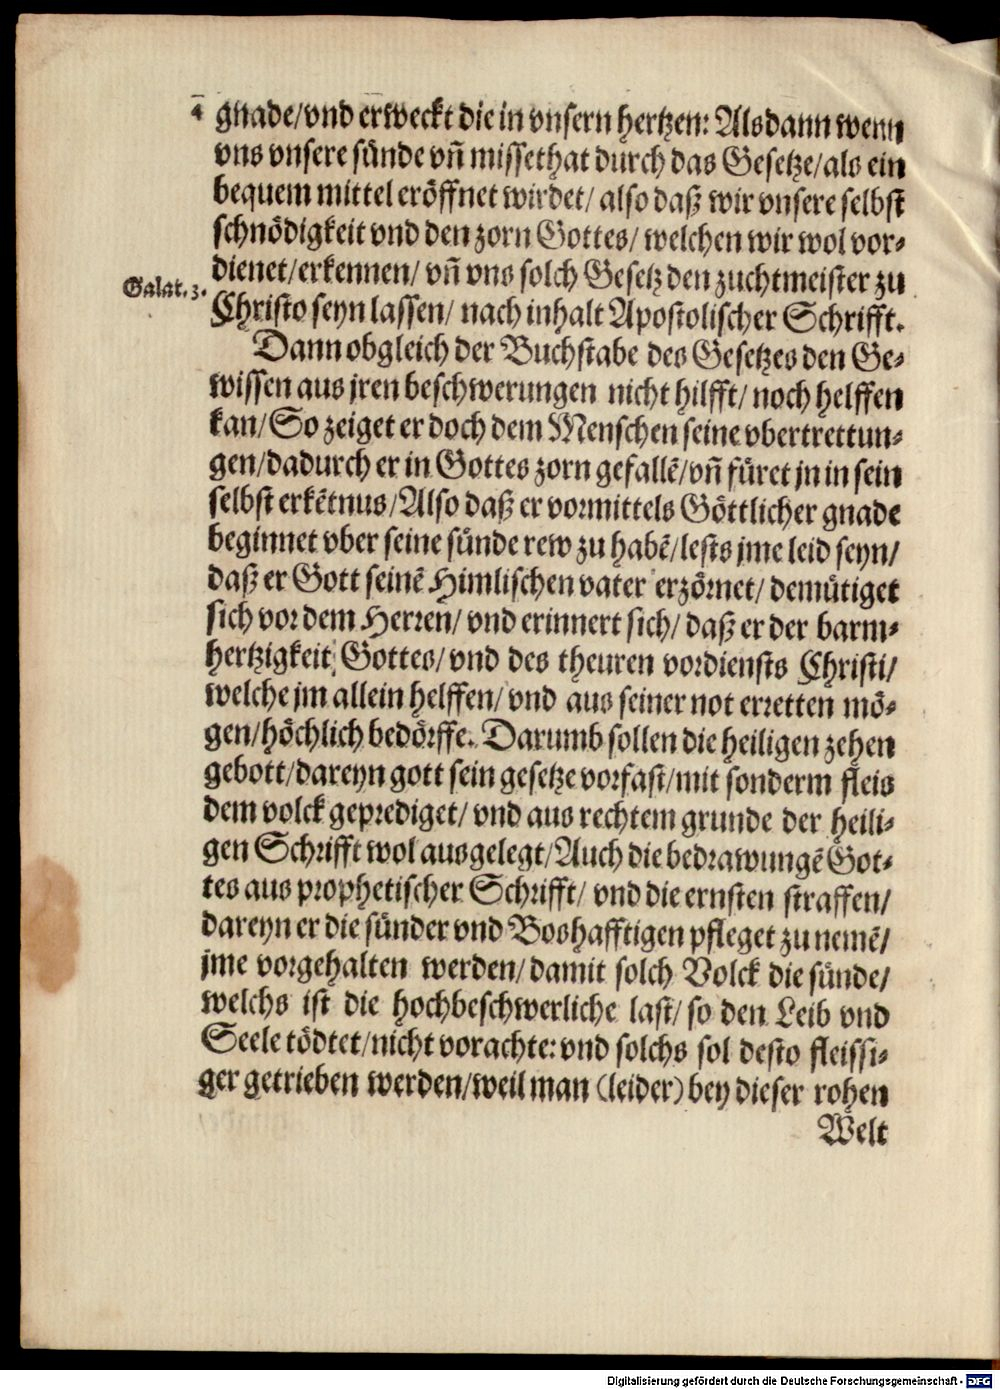 gnade/vnd erweckt die in vnsern hertzen: Alsdann wenn
vns vnsere sünde vñ missethat durch das Gesetze/als ein
bequem mittel eröffnet wirdet/ also daß wir vnsere selbst
schnödigkeit vnd den zorn Gottes/ welchen wir wol vor-
dienet/erkennen/ vñ vns solch Gesetz den zuchtmeister zu
Galat. 3.
Christo seyn lassen/ nach inhalt Apostolischer Schrifft.
Dann obgleich der Buchstabe des Gesetzes den Ge-
wissen aus jren beschwerungen nicht hilfft/ noch helffen
kan/ So zeiget er doch dem Menschen seine vbertrettun-
gen/dadurch er in Gottes zorn gefallē/vñ füret jn in sein
selbst erkētnus/Also daß er vormittels Göttlicher gnade
beginnet vber seine sünde rew zu habē/lests jme leid seyn/
daß er Gott seinē Himlischen vater erzörnet/ demütiget
sich vor dem Herren/ vnd erinnert sich/ daß er der barm-
hertzigkeit Gottes/ vnd des theuren vordiensts Christi/
welche jm allein helffen/ vnd aus seiner not erretten mö-
gen/höchlich bedörffe. Darumb sollen die heiligen zehen
gebott/dareyn gott sein gesetze vorfast/mit sonderm fleis
dem volck geprediget/ vnd aus rechtem grunde der heili-
gen Schrifft wol ausgelegt/Auch die bedrawungē Got-
tes aus prophetischer Schrifft/ vnd die ernsten straffen/
dareyn er die sünder vnd Boshafftigen pfleget zu nemē/
jme vorgehalten werden/ damit solch Volck die sünde/
welchs ist die hochbeschwerliche last/ so den Leib vnd
Seele tödtet/nicht vorachte: vnd solchs sol desto fleissi-
ger getrieben werden/weil man (leider) bey dieser rohen
Welt
Digitalisierung gefördert durch die Deutsche Forschungsgemeinschaft - DFG